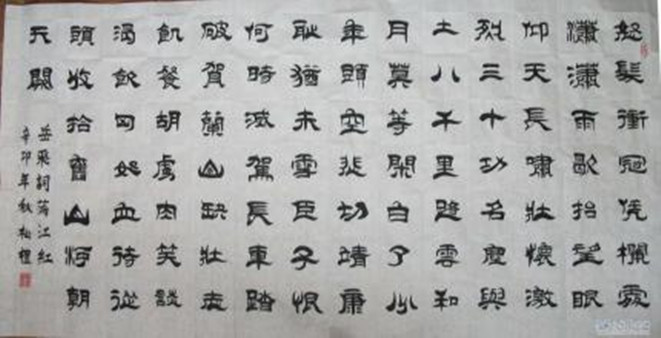 怒髮衝冠凭欄處
瀟瀟雨歇抬望眼
仰天長嘯壯懷激
烈三十功名塵與
土八千里路雲和
月莫等閑白了少
年頭空悲切靖康
恥猶未雪臣子恨
何時滅駕長車踏
破賀蘭山缺壯志
飢餐胡虜肉笑談
渴飲匈奴血待從
頭收拾舊山河朝
天闕
岳飛詞滿江紅
辛卯年秋